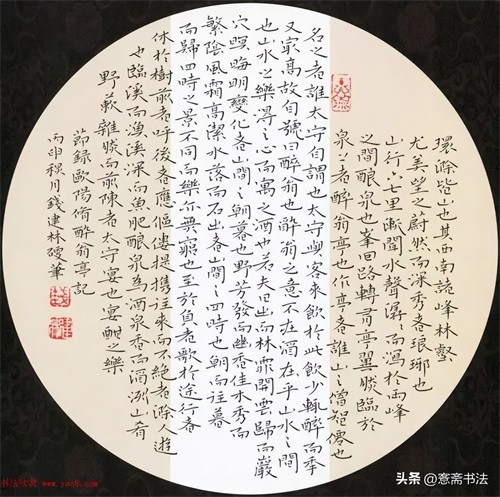 環滁皆山也其西南諸峰林壑
尤美望之蔚然而深秀者琅琊也
山行六七里漸聞水聲潺〻而瀉於兩峰
之間釀泉也峯回路轉有亭翼然臨於
泉上者醉翁亭也作亭者誰山之僧智僊也
名之者誰太守自謂也太守與客來飲於此飲少輒醉而年
又最高故自號曰醉翁也醉翁之意不在酒在乎山水之間
也山水之樂得之心而寓之酒也若夫日出而林霏開雲歸而巖
穴暝晦明變化者山間之朝暮也野芳發而幽香佳木秀而
繁陰風霜高潔水落而石出者山間之四時也朝而往暮
而歸四時之景不同而樂亦無窮也至於負者歌於途行者
休於樹前者呼後者應傴僂提攜往來而不絕者滁人遊
也臨溪而漁溪深而魚肥釀泉為酒泉香而酒洌山肴
野蔌雜然而前陳者太守宴也宴酣之樂
節錄歐陽脩醉翁亭記
丙申秋月錢建林硬筆
书法欣赏 www.yac8.com
头条 @憲斋书法